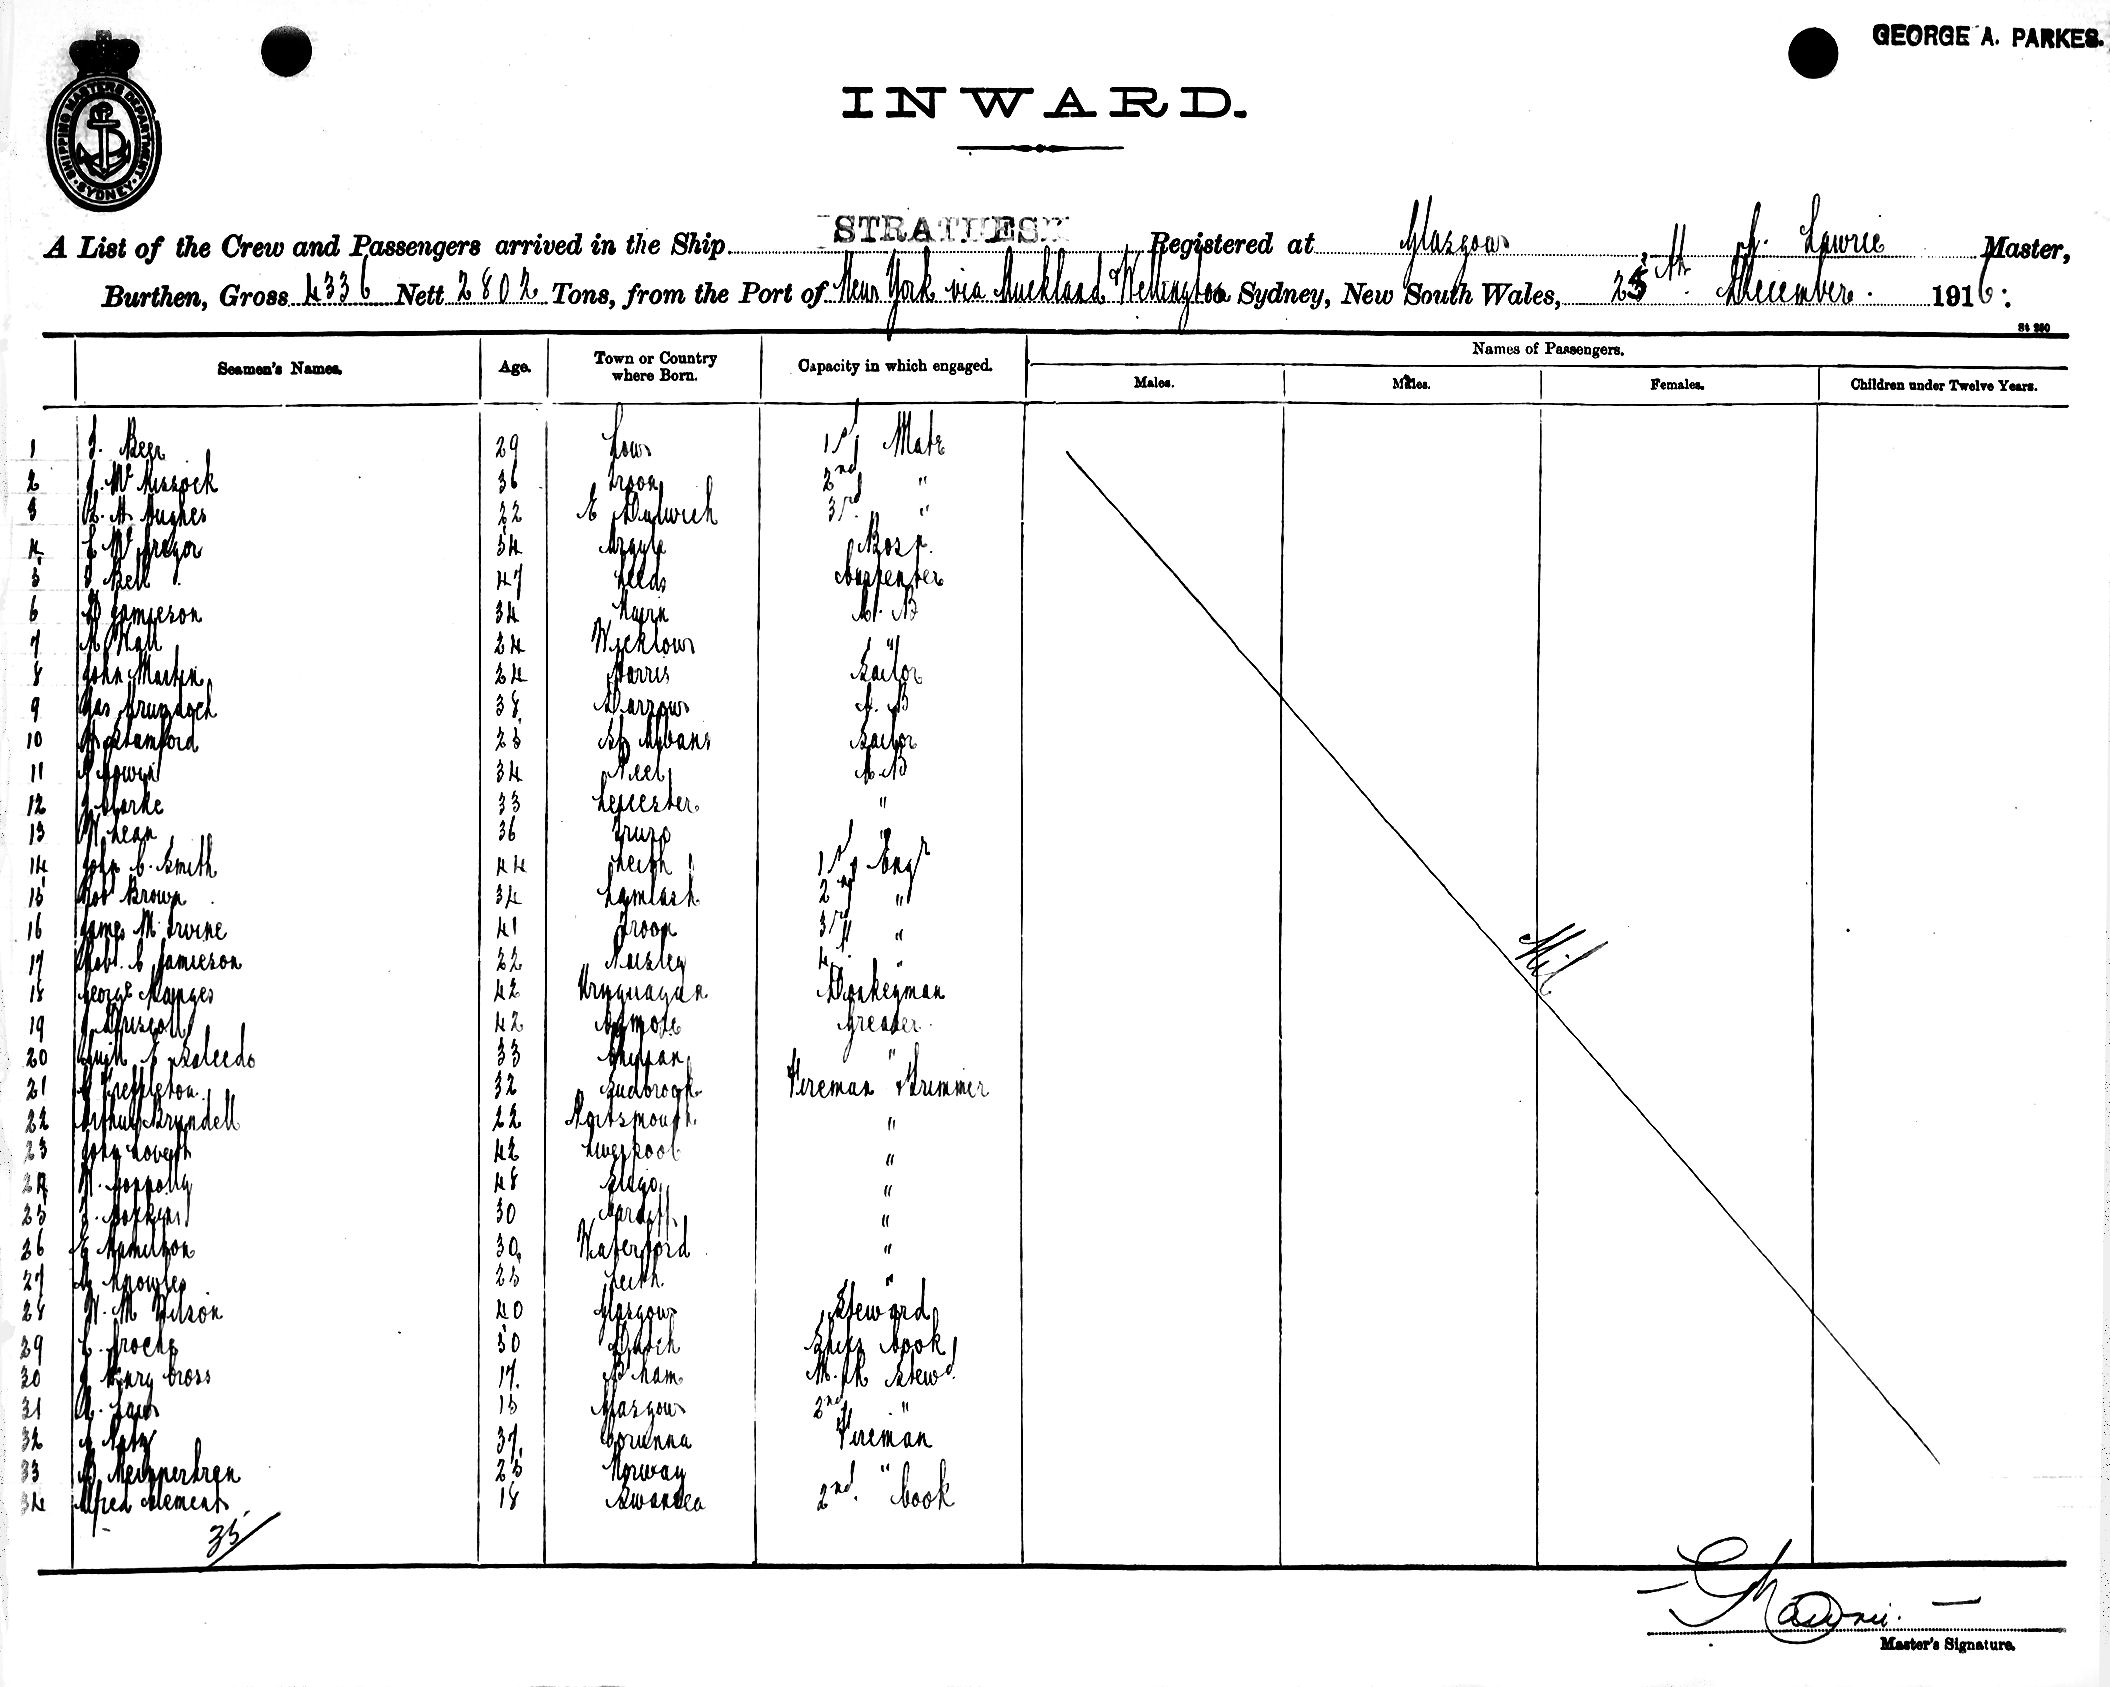 GEORGE A. PARKES.
SHIPPING MASTERS DEPARTMENT SYDNEY
INWARD.
A List of the Crew and Passengers arrived in the Ship STRATHESK Registered at Glasgow J. Lawrie Master,
Burthen, Gross 4336 Nett 2802 Tons, from the Port of New York via Auckland & Wellington Sydney, New South Wales, 25th December. 1916.
Seamen's Names. Age. Town or Country where Born. Capacity in which engaged. Names of Passengers.
Males. Males. Females. Children under Twelve Years.
1 Beer 29 1st Mate
2 36 Troon 2nd "
3 Hughes 22 E Dulwich 3rd "
4 McGregor 54 Argyle Bosn.
5 Bell 47 Leeds Carpenter
6 Jamieson 34 Nairn A. B
7 Hall 24 Wicklow "
8 John Martin 24 Harris Sailor
9 Chas 38 A. B
10 Stamford 25 St Albans Sailor
11 34 Peel A. B
12 Clarke 33 Leicester "
13 Lean 36 Truro "
14 John C. Smith 44 Leith 1st Engr
15 Rob Brown 34 Lamlash 2nd "
16 James M. Irvine 41 Troon 3rd "
17 Robt. C Jamieson 22 Paisley 4th "
18 George 42 Uruguayan Donkeyman
19 J Driscoll 42 Greaser
20 Salcedo 33 Chilian "
21 32 Sudbrook Fireman & Trimmer
22 Arthur Brundell 22 Portsmouth "
23 John Lovett 42 Liverpool "
24 Connolly 48 Sligo "
25 30 Cardiff "
26 Hamilton 30 Waterford "
27 Knowles 25 Leith "
28 W. M Wilson 40 Glasgow Steward
29 50 Dutch Ships Cook
30 Cross 17 B'ham M. R Stewd
31 15 Glasgow 2nd "
32 37 Corunna Fireman
33 25 Norway "
34 Alfred Clement 18 Swansea 2nd. Cook
35
Nil
Master's Signature.